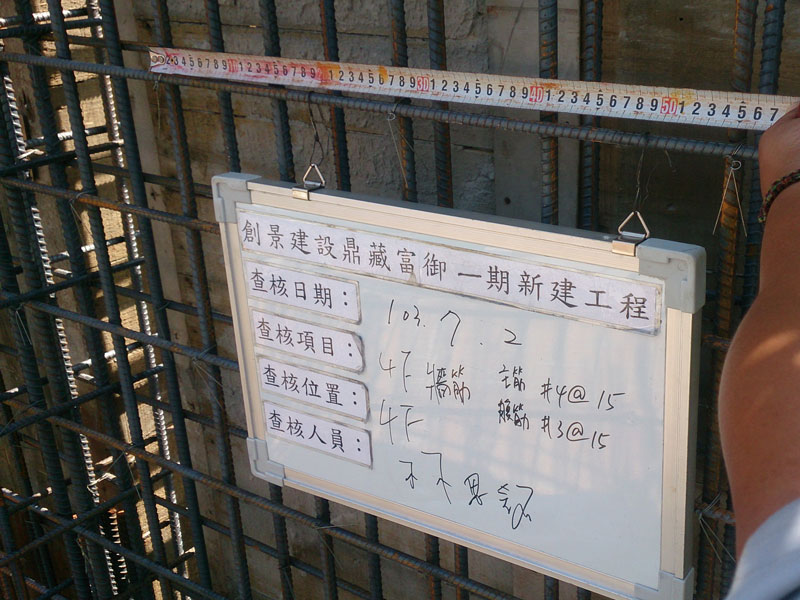 2 3 4 5 6 7 8 9 10 1 2 3 4 5 6 7 8 9 1 2 3 4 5 6 7 8 9 30 1 2 3 4 5 6 7 8 9 40 1 2 3 4 5 6 7 8 9 50 1 2 3 4 5 6 7
創景建設鼎藏富御一期新建工程
查核日期： 103. 7. 2
查核項目： 4F 牆筋 主筋 #4@15
查核位置： 4F 繫筋 #3@15
查核人員：